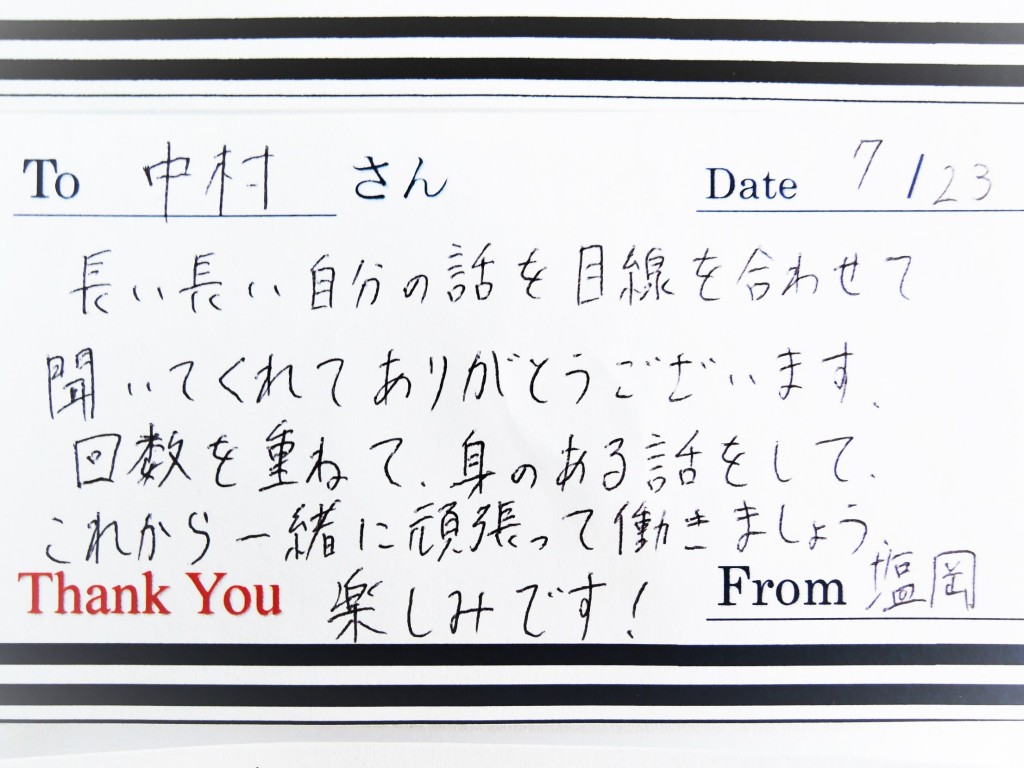 To 中村 さん Date 7/23
長い長い自分の話を目線を合わせて
聞いてくれてありがとうございます、
回数を重ねて、身のある話をして、
これから一緒に頑張って働きましょう。
Thank You 楽しみです! From 塩岡